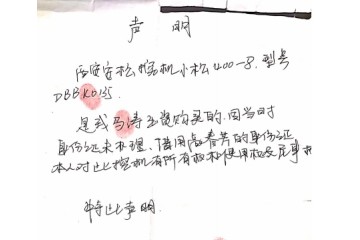 声 明
挖机小松400-8.型号
DBBK0
是我马涛出资购买的,因当时
身份证未办理、借用 春芳的身份证
本人对此挖机有所有权和使用权及
特此声明.